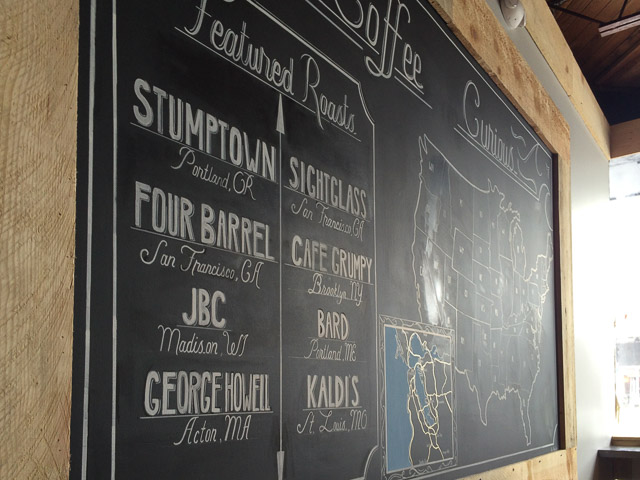 Coffee
Featured Roasts
STUMPTOWN
Portland, OR
FOUR BARREL
San Francisco, CA
JBC
Madison, WI
GEORGE HOWELL
Acton, MA
SIGHTGLASS
San Francisco, CA
CAFE GRUMPY
Brooklyn, NY
BARD
Portland, ME
KALDI'S
St. Louis, MO
Curious